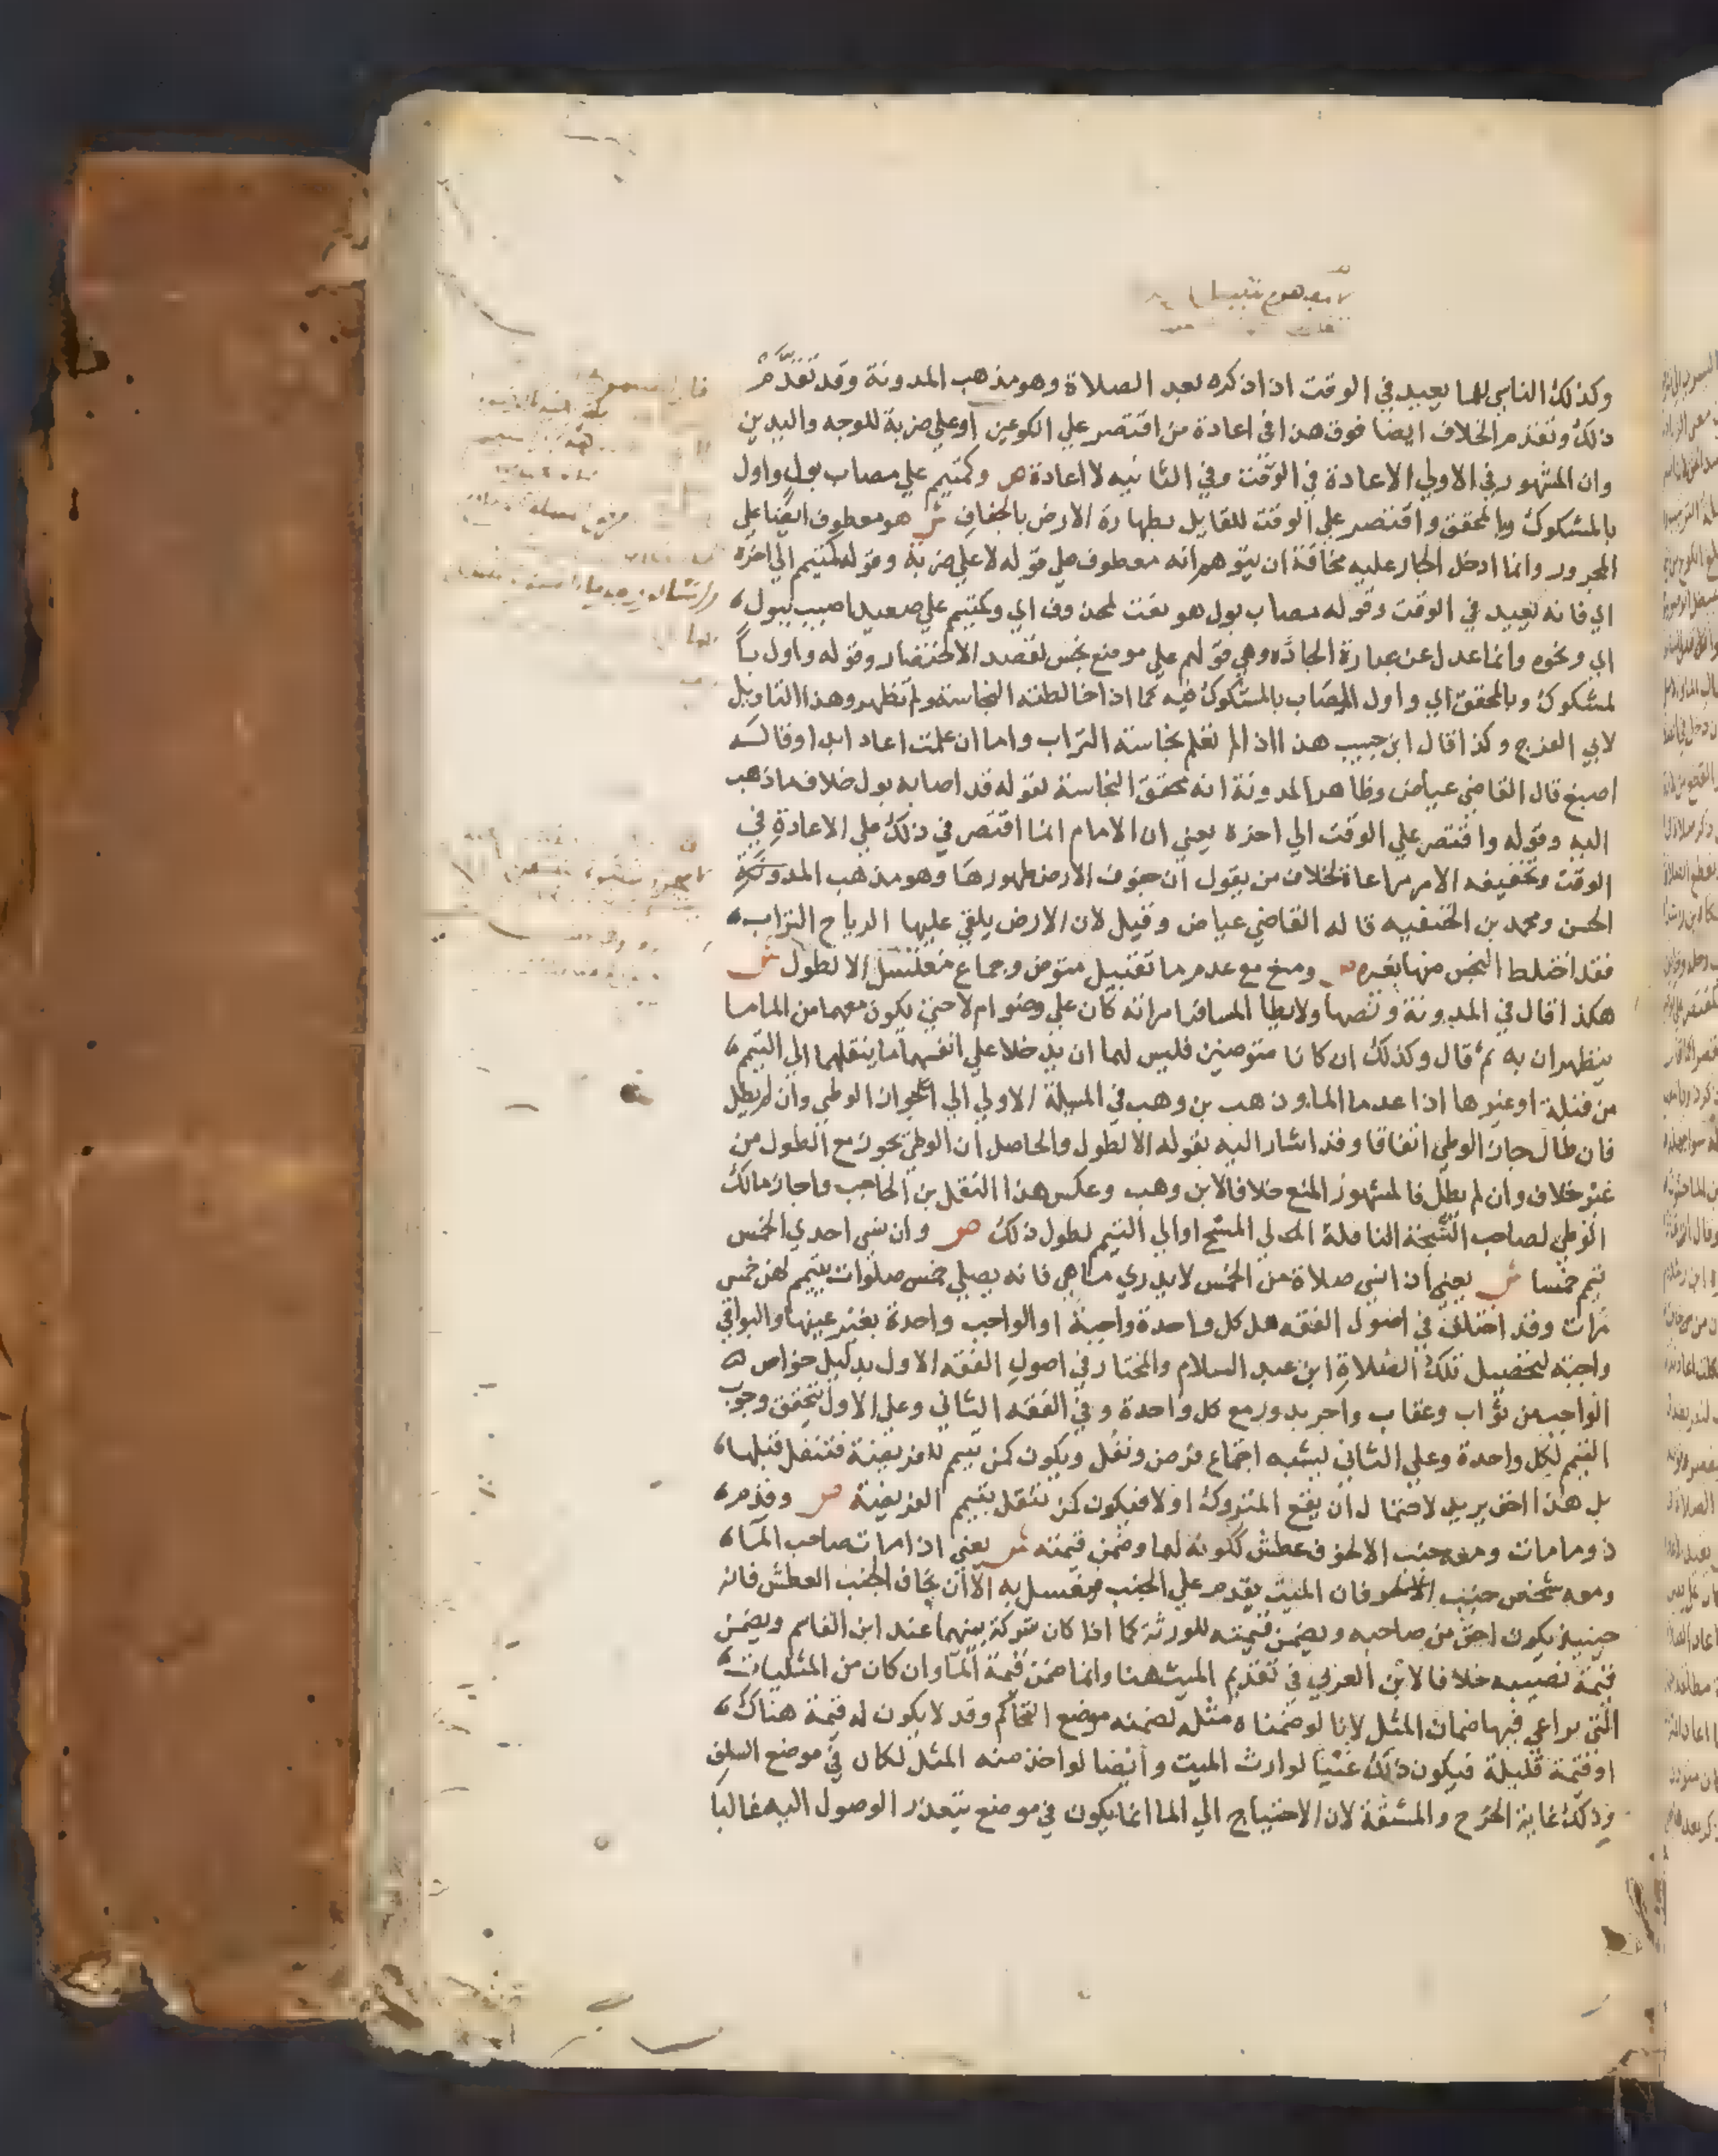 وكذلك الناسي للما يعيد في الوقت اذا ذكره بعد الصلاة وهو مذهب المدونة وقد تقدم
ذلك وتقدم الخلاف ايضا فوق هذا في اعادة من اقتصر علي الكوعين او علي ضربة للوجه واليدين
وان المشهور في الاولي الاعادة في الوقت وفي الثانيه لا اعادة ص وكمتيمم علي مصاب بول واول
بالمشكوك وبالمحقق واقتصر علي الوقت للقايل بطهارة الارض بالجفاف ش هو معطوف ايضا علي
المجرور وانما ادخل الجار عليه مخافة ان يتوهم انه معطوف علي قوله لا علي ضربة وقوله كمتيمم الي اخره
اي فانه يعيد في الوقت وقوله مصاب بول هو نعت لمحذوف اي وكمتيمم علي صعيد اصيب ببول
اي ونحوه وانما عدل عن عبارة الجادة وهي قولهم علي موضع نجس لقصد الاختصار وقوله واول با
لمشكوك وبالمحقق اي واول المصاب بالمشكوك فيه كما اذا خالطته النجاسة ولم تظهر وهذا التاويل
لابي الفرج وكذا قال ابن حبيب هذا اذا لم تعلم نجاسة التراب واما ان علمت اعاد ابدا وقاله
اصبغ قال القاضي عياض وظاهر المدونة انه محقق النجاسة لقوله قد اصابه بول خلاف ما ذهب
اليه وقوله واقتصر علي الوقت الي اخره يعني ان الامام انما اقتصر في ذلك علي الاعادة في
الوقت وتخفيفه الامر مراعاة لخلاف من يقول ان جفوف الارض طهورها وهو مذهب المدونة
الحسن ومحمد بن الحنفيه قاله القاضي عياض وقيل لان الارض يلقي عليها الرياح التراب
فقد اختلط النجس منها بغيره ص ومنع مع عدم ما تقبيل متوض وجماع مغتسل الا لطول ش
هكذا قال في المدونة ونصها ولا يطا المسافر امراته كان علي وضو ام لا حتي يكون معهما من الما ما
يتطهران به ثم قال وكذلك ان كانا متوضيين فليس لهما ان يدخلا علي انفسهما ما ينقلهما الي التيمم
من قبلة او غيرها اذا عدما الما وذهب بن وهب في المسيلة الاولي الي جواز الوطي وان لم يطل
فان طال جاز الوطي اتفاقا وقد اشار اليه بقوله الا لطول والحاصل ان الوطي يجوز مع الطول من
غير خلاف وان لم يطل فالمشهور المنع خلافا لابن وهب وعكس هذا النقل بن الحاجب واجاز مالك
الوطي لصاحب الشجة الناقلة الي المسح او الي التيمم لطول ذلك ص وان نسي احدي الخمس
تيمم خمسا ش يعني اذا نسي صلاة من الخمس لا يدري ما هي فانه يصلي خمس صلوات بتيمم لهن خمس
مرات وقد اختلف في اصول الفقه هل كل واحدة واجبة او الواجب واحدة بغير عينها والبواقي
واجبة لتحصيل تلك الصلاة ابن عبد السلام والمختار في اصول الفقه الاول بدليل خواص
الواجب من ثواب وعقاب واجر يدور مع كل واحدة وفي الفقه الثاني وعلي الاول يتحقق وجوب
التيمم لكل واحدة وعلي الثاني ليشبه اجتماع فرض ونفل ويكون كمن تيمم لفريضة فتنفل قبلها
بل هذا اخف يريد لاحتمال ان يقع المتروك اولا فيكون كمن تنفل بتيمم الفريضة ص وقدم
ذو ما مات ومعه جنب الا لخوف عطش ككونه لهما وضمن قيمته ش يعني اذا مات صاحب الما
ومعه شخص جنب فان الميت يقدم علي الجنب فيغسل به الا ان يخاف الجنب العطش فانه
حينيذ يكون احق من صاحبه ويضمن قيمته للورثة كما اذا كان شركة بينهما عند ابن القاسم ويضمن
قيمة نصيبه خلافا لابن العربي في تقديم الميت هنا وانما ضمن قيمة الما وان كان من المثليات
التي يراعي فيها ضمان المثل لانا لو ضمناه مثله لضمنه موضع التحاكم وقد لا يكون له قيمة هناك
او قيمة قليلة فيكون ذلك غبنا لوارث الميت وايضا لو اخذ منه المثل لكان في موضع السلف
وذلك غاية الحرج والمشقة لان الاحتياج الي الما انما يكون في موضع يتعذر الوصول اليه غالبا